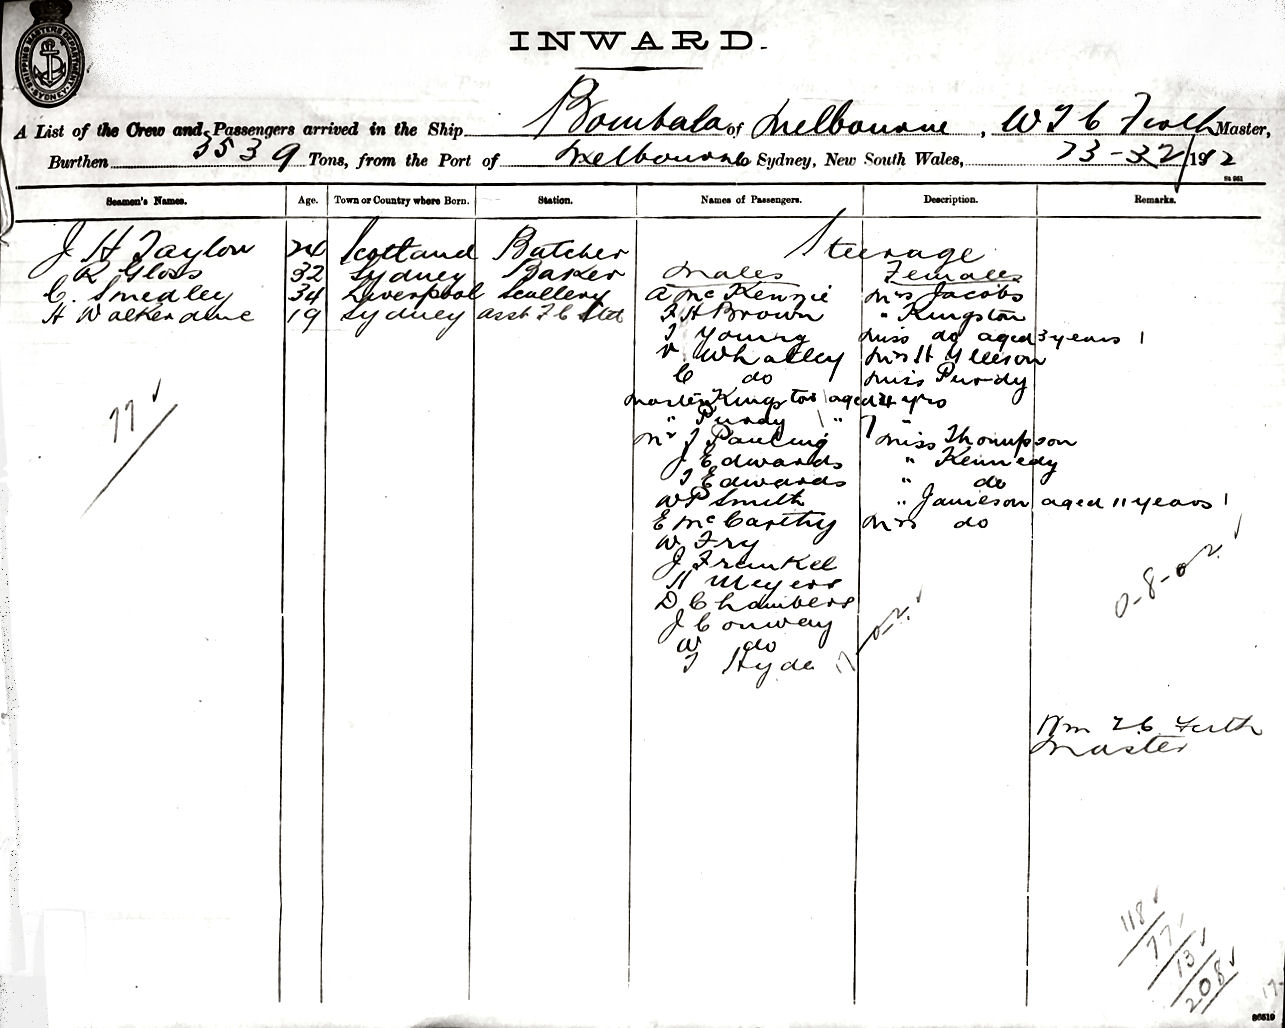 SHIPPING MASTERS DEPARTMENT SYDNEY
INWARD.
A List of the Crew and Passengers arrived in the Ship Bombala of Melbourne, W T C Firth Master,
Burthen 3539 Tons, from the Port of Melbourne to Sydney, New South Wales, 1912
Seamen's Names. Age. Town or Country where Born. Station. Names of Passengers. Description. Remarks.
Steerage
J H Taylor 24 Scotland Butcher Males Females
R Gloss 32 Sydney Baker
C. Smedley 34 Liverpool Scullery A McKenzie Mrs Jacobs
H Walkerdine 19 Sydney asst F C Std F H Brown " Kingston
T Young Miss do aged 3 years 1
V Whalley Mrs H
C do Miss Purdy
Master Kingston 1 aged 4 yrs
" Purdy 1 " 7 "
Mr T Pauling Miss Thompson
J Edwards " Kennedy
T Edwards " do
W P Smith " Jamieson aged 11 years 1
E McCarthy Mrs do
W Fry
J Frenkel
H Meyers
D Chambers
J Conway
W do
T Hyde 17
77
0-2
0-8-0-2
Wm T C Firth
Master
118
77
13
208
17